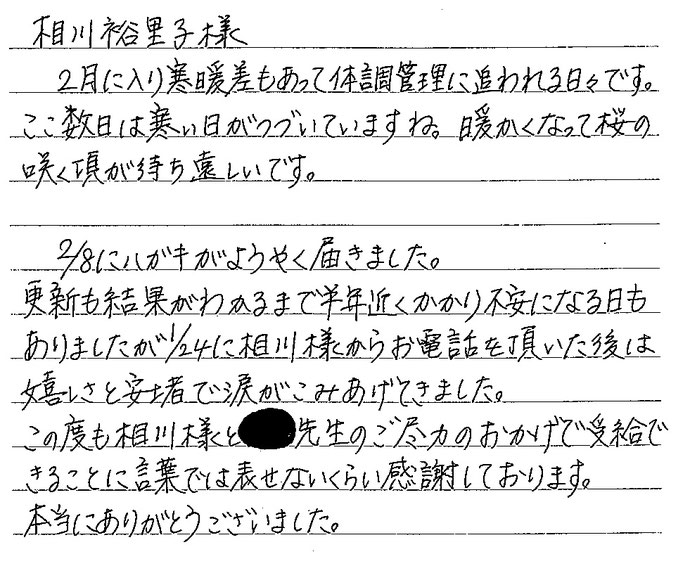 相川裕里子様
2月に入り寒暖差もあって体調管理に追われる日々です。
ここ数日は寒い日がつづいていますね。暖かくなって桜の
咲く頃が待ち遠しいです。
2/8にハガキがようやく届きました。
更新も結果がわかるまで半年近くかかり不安になる日も
ありましたが1/24に相川様からお電話を頂いた後は
嬉しさと安堵で涙がこみあげてきました。
この度も相川様と先生のご尽力のおかげで受給で
きることに言葉では表せないくらい感謝しております。
本当にありがとうございました。